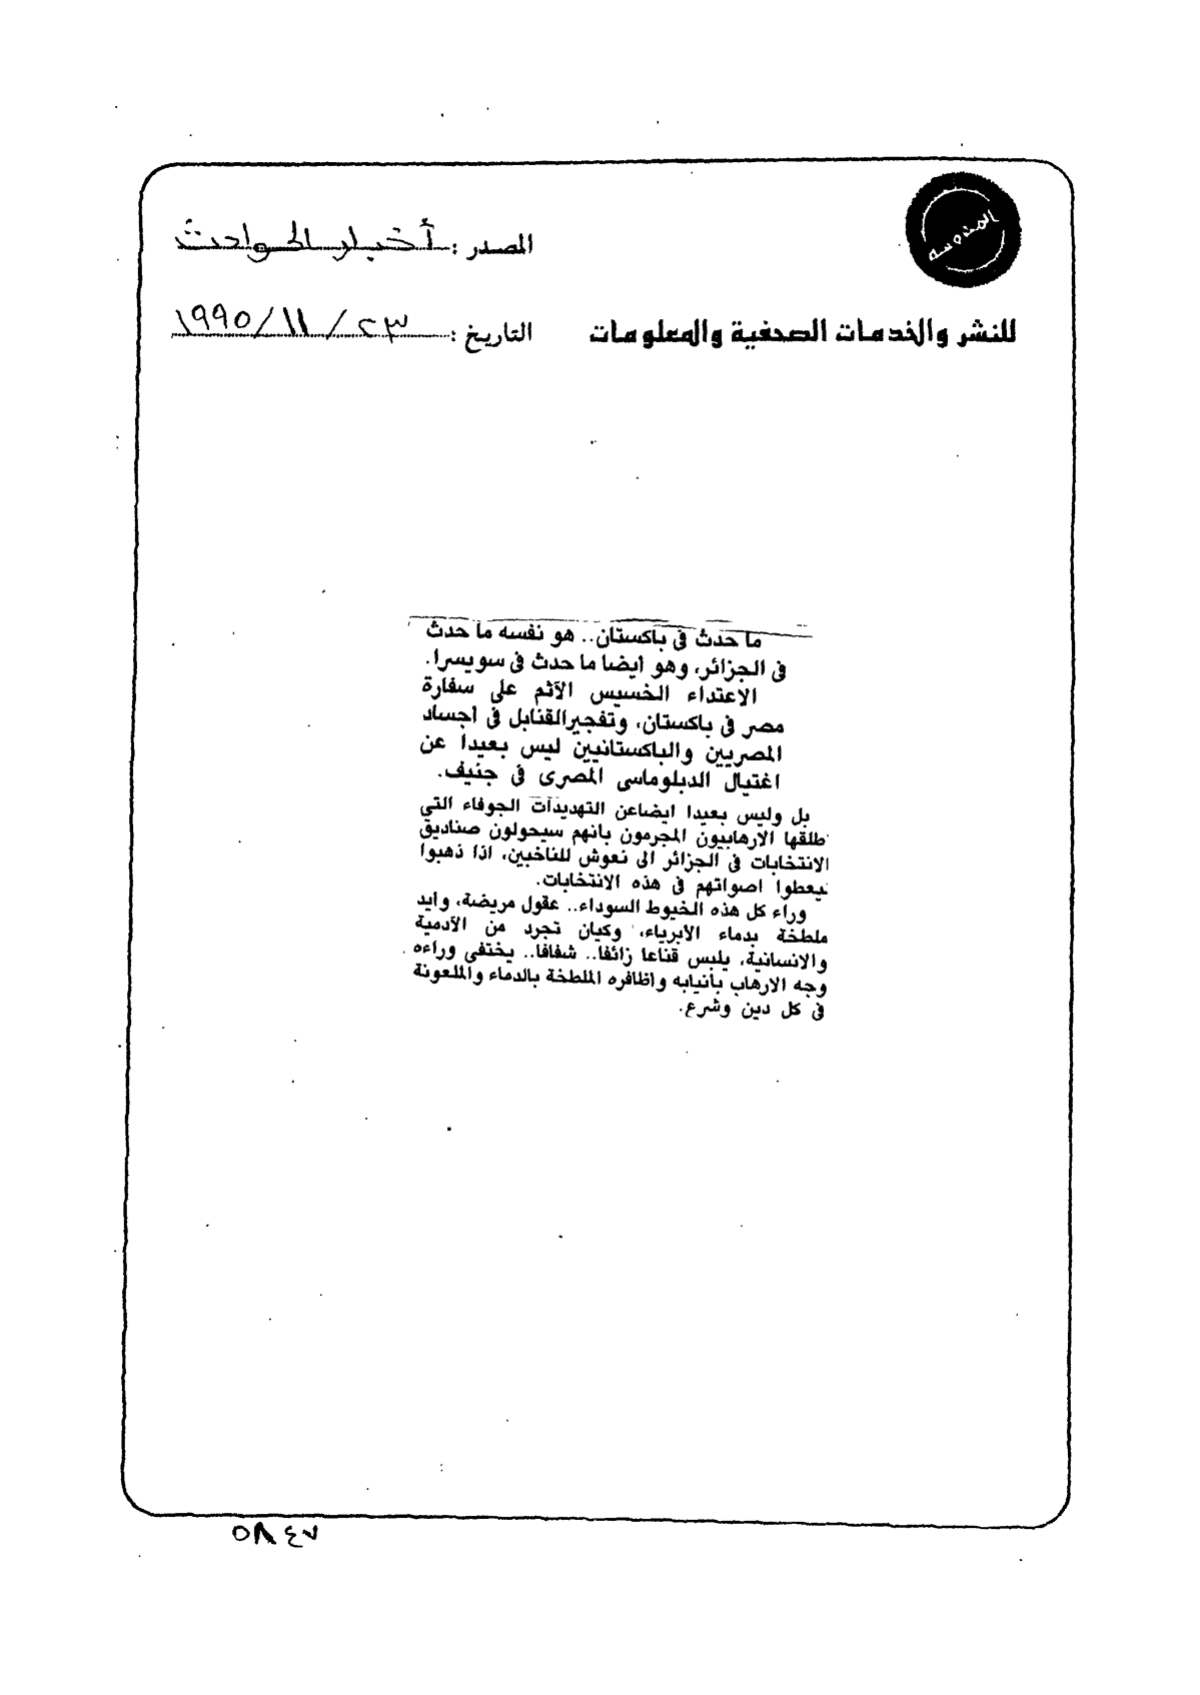 المصدر : أخبار الحوادث
للنشر والخدمات الصحفية والمعلومات
التاريخ : ٢٣ / ١١ / ١٩٩٥
ما حدث فى باكستان.. هو نفسه ما حدث
فى الجزائر، وهو أيضا ما حدث فى سويسرا.
الاعتداء الخسيس الآثم على سفارة
مصر فى باكستان، وتفجير القنابل فى أجساد
المصريين والباكستانيين ليس بعيدا عن
اغتيال الدبلوماسى المصرى فى جنيف.
بل وليس بعيدا ايضا عن التهديدات الجوفاء التى
طلقها الارهابيون المجرمون بانهم سيحولون صناديق
الانتخابات فى الجزائر الى نعوش للناخبين، اذا ذهبوا
ليعطوا اصواتهم فى هذه الانتخابات.
وراء كل هذه الخيوط السوداء.. عقول مريضة، وايد
ملطخة بدماء الابرياء، وكيان تجرد من الآدمية
والانسانية، يلبس قناعا زائفا.. شفافا.. يختفى وراءه
وجه الارهاب بأنيابه واظافره الملطخة بالدماء والملعونة
فى كل دين وشرع.
٥٨٤٧